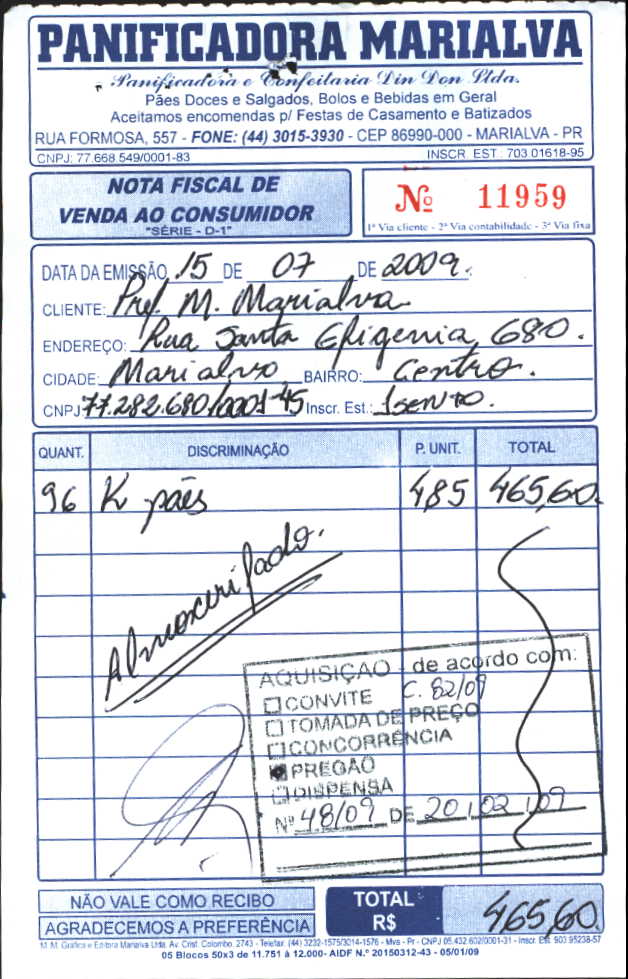 PANIFICADORA MARIALVA
Panificadora e Confeitaria Din Don Ltda.
Pães Doces e Salgados, Bolos e Bebidas em Geral
Aceitamos encomendas p/ Festas de Casamento e Batizados
RUA FORMOSA, 557 - FONE: (44) 3015-3930 - CEP 86990-000 - MARIALVA - PR
CNPJ: 77.668.549/0001-83 INSCR. EST. 703.01618-95
NOTA FISCAL DE
VENDA AO CONSUMIDOR
"SÉRIE - D-1"
Nº 11959
1ª Via cliente - 2ª Via contabilidade - 3ª Via fixa
DATA DA EMISSÃO 15 DE 07 DE 2009.
CLIENTE: Pref. M. Marialva
ENDEREÇO: Rua Santa Efigenia, 680.
CIDADE: Marialva BAIRRO: Centro.
CNPJ 77.282.680/0001-45 Inscr. Est.: Isento.
QUANT. DISCRIMINAÇÃO P. UNIT. TOTAL
96 K pães 4,85 465,60.
Almoxerifado.
AQUISIÇÃO - de acordo com:
CONVITE C. 82/09
TOMADA DE PREÇO
CONCORRÊNCIA
PREGÃO
DISPENSA
Nº 48/09 DE 20/02/09
NÃO VALE COMO RECIBO
AGRADECEMOS A PREFERÊNCIA
TOTAL
R$ 465,60
M. M. Gráfica e Editora Marialva Ltda. Av. Crist. Colombo, 2743 - Telefax: (44) 3232-1575/3014-1576 - Mva - Pr - CNPJ 05.432.602/0001-31 - Inscr. Est. 903.95238-57
05 Blocos 50x3 de 11.751 à 12.000- AIDF N.º 20150312-43 - 05/01/09